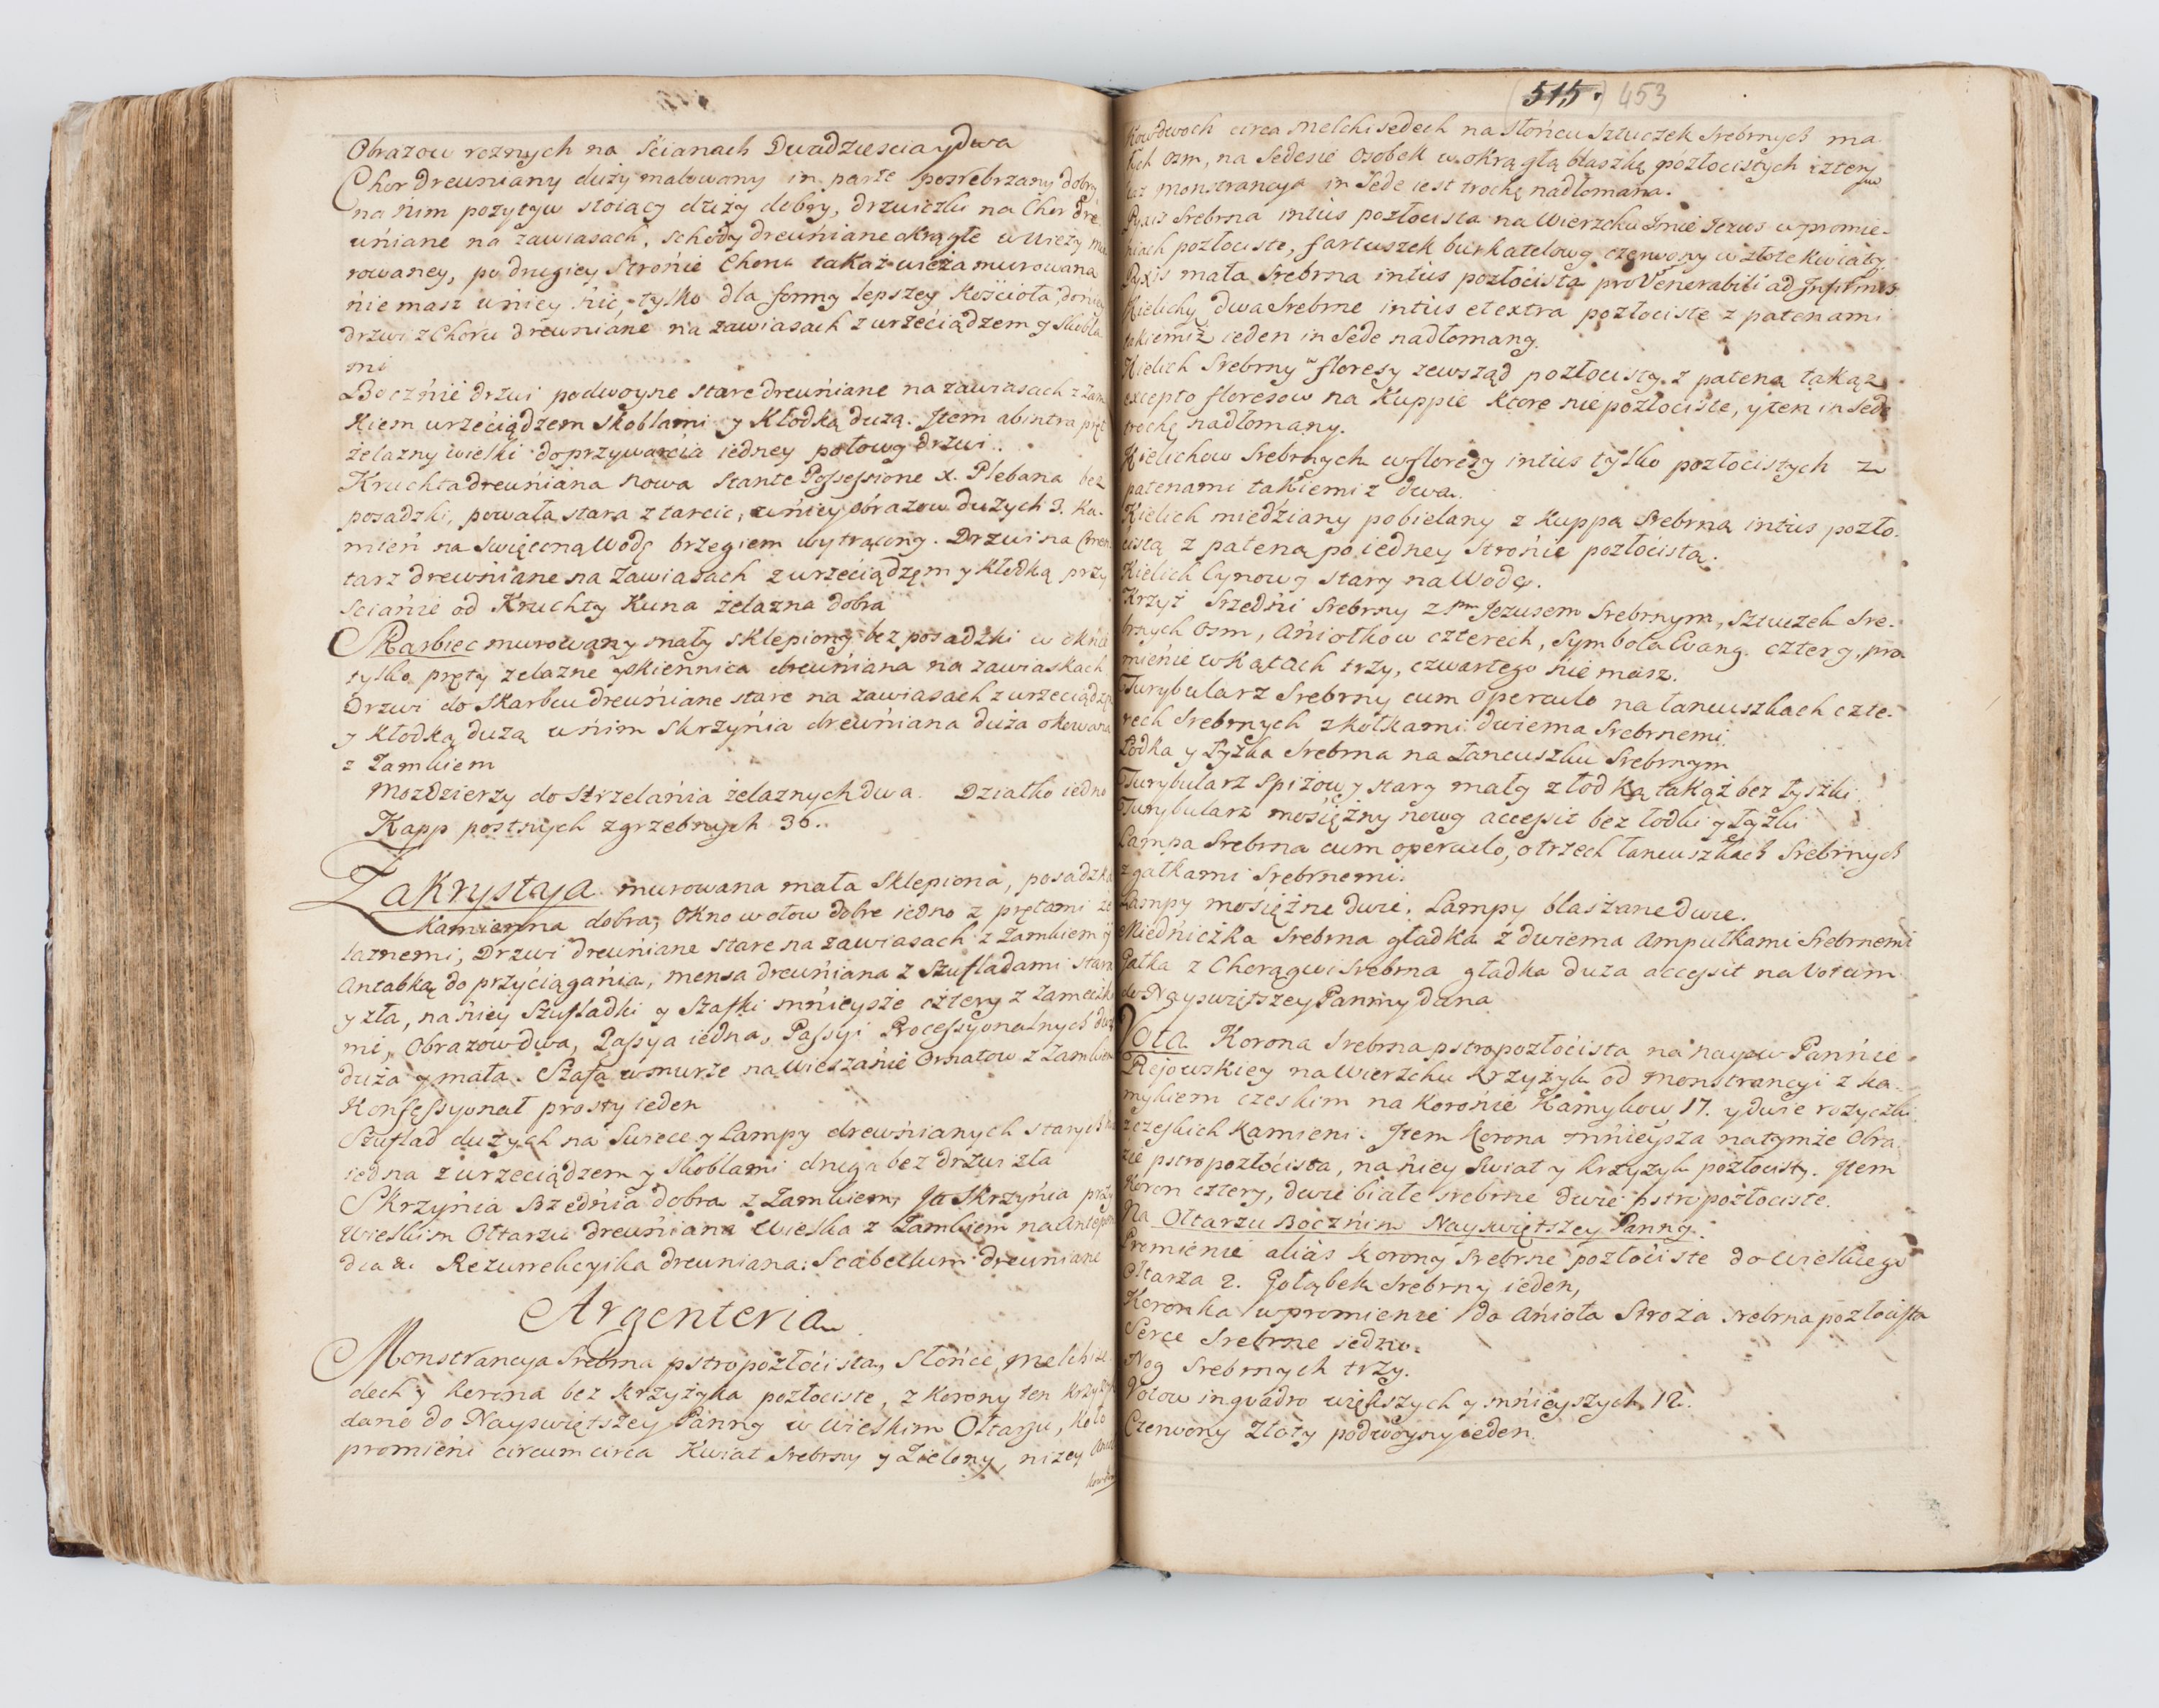 Obrazow roznych na Scianach Dwadziescia y dwa
Chor drewniany duży malowany in parte posrebrzany dobry
na nim pozytyw stoiący duzy dobry, drzwiczki na Chor dre
wńiane na zawiasach, schody drewńiane okrągłe w wieży mu
rowaney, po drugiey Strońie Choru takaż wieża murowana
ńie masz w ńiey ńic, tylko dla formy lepszey Kościoła, dońiey
drzwi z Choru drewńiáne na zawiasach z wrzećiądzem y Skobla
mi
Boczńié drzwi podwoyne stare drewńiane na zawiasach z Zam
kiem wrzećiądzem Skoblami y Kłodką dużą. Jtem abintra pręt
żelázny wielki do przywarćia iedney połowy drzwi.
Kruchta drewńiana nowa Stante Possessione X. Plebana bez
posadzki, powała stara z tarcic, w ńiey obrazow dużych 3. Ka-
mień na Swięconą Wodę brzegiem wytrącony. Drzwi na Cmen
tarz drewńiane na Zawiasach z wrzećiądzem y Kłodką przy
Sciańie od Kruchty Kuna żelazna dobra
Skarbiec murowany mały sklepiony bez posadzki w okńie
tylko pręty zelazne y okiennica drewńiana na zawiaskach
Drzwi do Skarbcu drewńiane stare na zawiasach z wrzeciądzem
y Kłodką dużą w ńim Skrzyńia drewńiana duża okowana
z Zamkiem
Mozdzierzy do Strzelańia żelaznych dwa. Działko iedno
Kapp postnych zgrzebnych 36.
Zakrystya murowana mała Sklepiona, posadzka
Kamienna dobra, Okno w ołow dobre iedno z prętami że
laznemi, Drzwi drewńiane stare na zawiasach z Zamkiem y
Antabką do przyćiągańia, mensa drewńiana z Szufladami stara
y zła, na ńiey Szufladki y Szafki mńieysze cztery z Zameczka
mi, Obrazow dwa, Passya iedna, Passyi Processyonalnych dwie
duża y mała. Szafa w murze na wieszańie Ornatow z Zamkiem
Konfessyonał prosty ieden
Szuflad dużych na Swiece y Lampy drewńianych starych
iedna z wrzeciądzem y Skoblami druga bez drzwi zła
Skrzyńia Srzedńia dobra z Zamkiem, Jta Skrzyńia przy
Wielkim Ołtarzu drewńiana Wielka z Zamkiem na Antepen
dia &. Rezurrekcyika drewniana: Scabellum drewniane
Argenteria
Monstrancya Srebrna pstropozłoćista, Słońce, Melchise
dech y korona bez krzyżyka pozłociste, z Korony ten krzyżyk
dano do Nayswiętszey Panny w Wielkim Ołtarzu, koło
promieni circumcirca Kwiat Srebrny y Zielony, nizey Anioł
kow dwoch
515. 453
kow dwoch circa Melchisedech na Słońcu Sztuczek Srebrnych ma
łych ośm, na Sedesie Osobek w okrągłą blaszkę pozłocistych cztery
Taż Monstrancya in Sede iest trochę nadłomana.
Pyxis Srebrna intùs pozłocista na Wierzchu Jmie Jezus w promie-
niach pozłociste, fartuszek burkatelowy czerwony w złote kwiaty.
Pyxis mała Srebrna intùs pozłoćista pro Venerabili ad Infirmos
Kielichy dwa Srebrne intùs et extra pozłociste z patenami
takiemiż ieden in Sede nadłomany.
Kielich Srebrny w floresy zewsząd pozłocisty z pateną takąż
excepto floresow na Kuppie ktore nie pozłociste, y ten in Sede
trochę nadłomany.
Kielichow Srebrnych w floresy intùs tylko pozłocistych z
patenami takiemiż dwa.
Kielich miedźiany pobielany z Kuppą Srebrną intùs pozło-
cistą z pateną po iedney Strońie pozłoćistą.
Kielich Cynowy stary na Wodę.
Krzyż Srzedńi Srebrny z Pnm Jezusem Srebrnym, Sztuczek Sre-
brnych Osm, Ańiołkow czterech, Symbola Evang. cztery, pro
mieńie w Kątach trzy, czwartego ńie masz.
Turybularz Srebrny cum operculo na łancuszkach czte-
rech Srebrnych z kołkami dwiema Srebrnemi.
Łodka y Łyżka Srebrna na Łancuszku Srebrnym
Turybularz Spiżowy stary mały z łodką takąż bez łyszki
Turybularz mosiężny nowy accessit bez łodki y Łyżki
Lampa Srebrna cum operculo, o trzech łancuszkach Srebrnych
z gałkami Srebrnemi.
Lampy mosiężne dwie. Lampy blaszane dwie.
Miedńiczka Srebrna gładka z dwiema Ampułkami Srebrnemi
Gałka z Chorągwi Srebrna gładka duza accessit na Votum
do Nayswiętszey Panny dana
Vota. Korona Srebrna pstropozłoćista na Nayśw Pannie
Kijowskiey na Wierzchu krzyżyk od Monstrancyi z ka-
mykiem czeskim na Korońie Kamykow 17. y dwie rożyczki
z czeskich Kamieni. Jtem Korona mńieysza na tymże Obra
zie pstropozłoćista, na ńiey Swiat y krzyżyk pozłocisty. Jtem
Koron cztery, dwie białe srebrne dwie pstropozłociste.
Na Ołtarzu Boczńim Nayswiętszey Panny.
Promienie aliàs korony Srebrne pozłociste do Wielkiego
Ołtarza 2. Gołąbek Srebrny ieden,
Koronka w promienie do Anioła Stroża srebrna pozłoćista
Serce Srebrne iedno.
Nog Srebrnych trzy.
Votow in quadro większych y mńieyszych 12.
Czerwony Złoty podwoyny ieden.